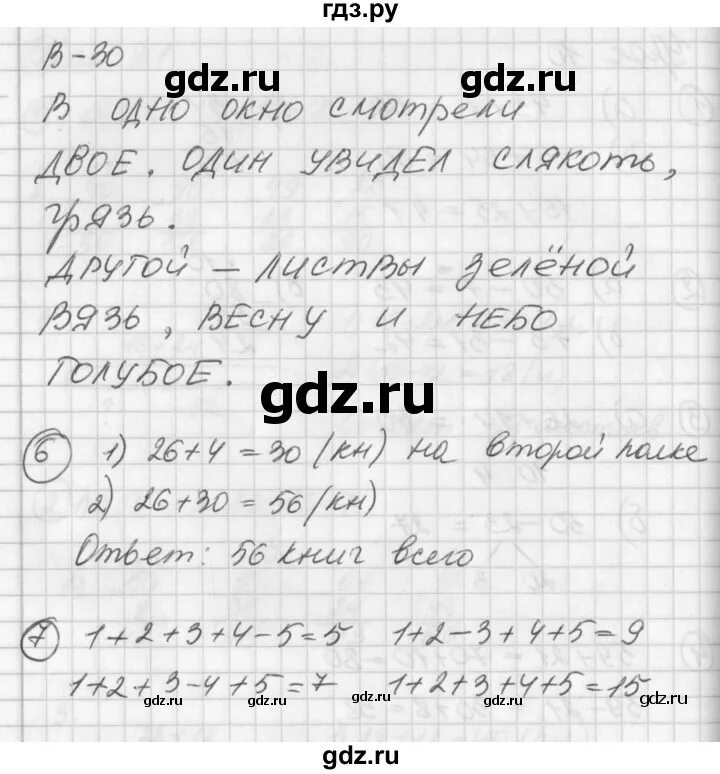 гдз.ру
В-30
gdz.ru gdz.ru
В ОДНО ОКНО СМОТРЕЛИ
ДВОЕ. ОДИН УВИДЕЛ СЛЯКОТЬ,
ГРЯЗЬ.
ДРУГОЙ – ЛИСТВЫ ЗЕЛЁНОЙ
ВЯЗЬ, ВЕСНУ И НЕБО
ГОЛУБОЕ.
gdz.ru
6 1) 26+4=30 (кн) на второй полке
2) 26+30=56 (кн)
Ответ: 56 книг всего
7 1+2+3+4-5=5 1+2-3+4+5=9
1+2+3-4+5=7 1+2+3+4+5=15
gdz.ru gdz.ru gdz.ru
gdz.ru